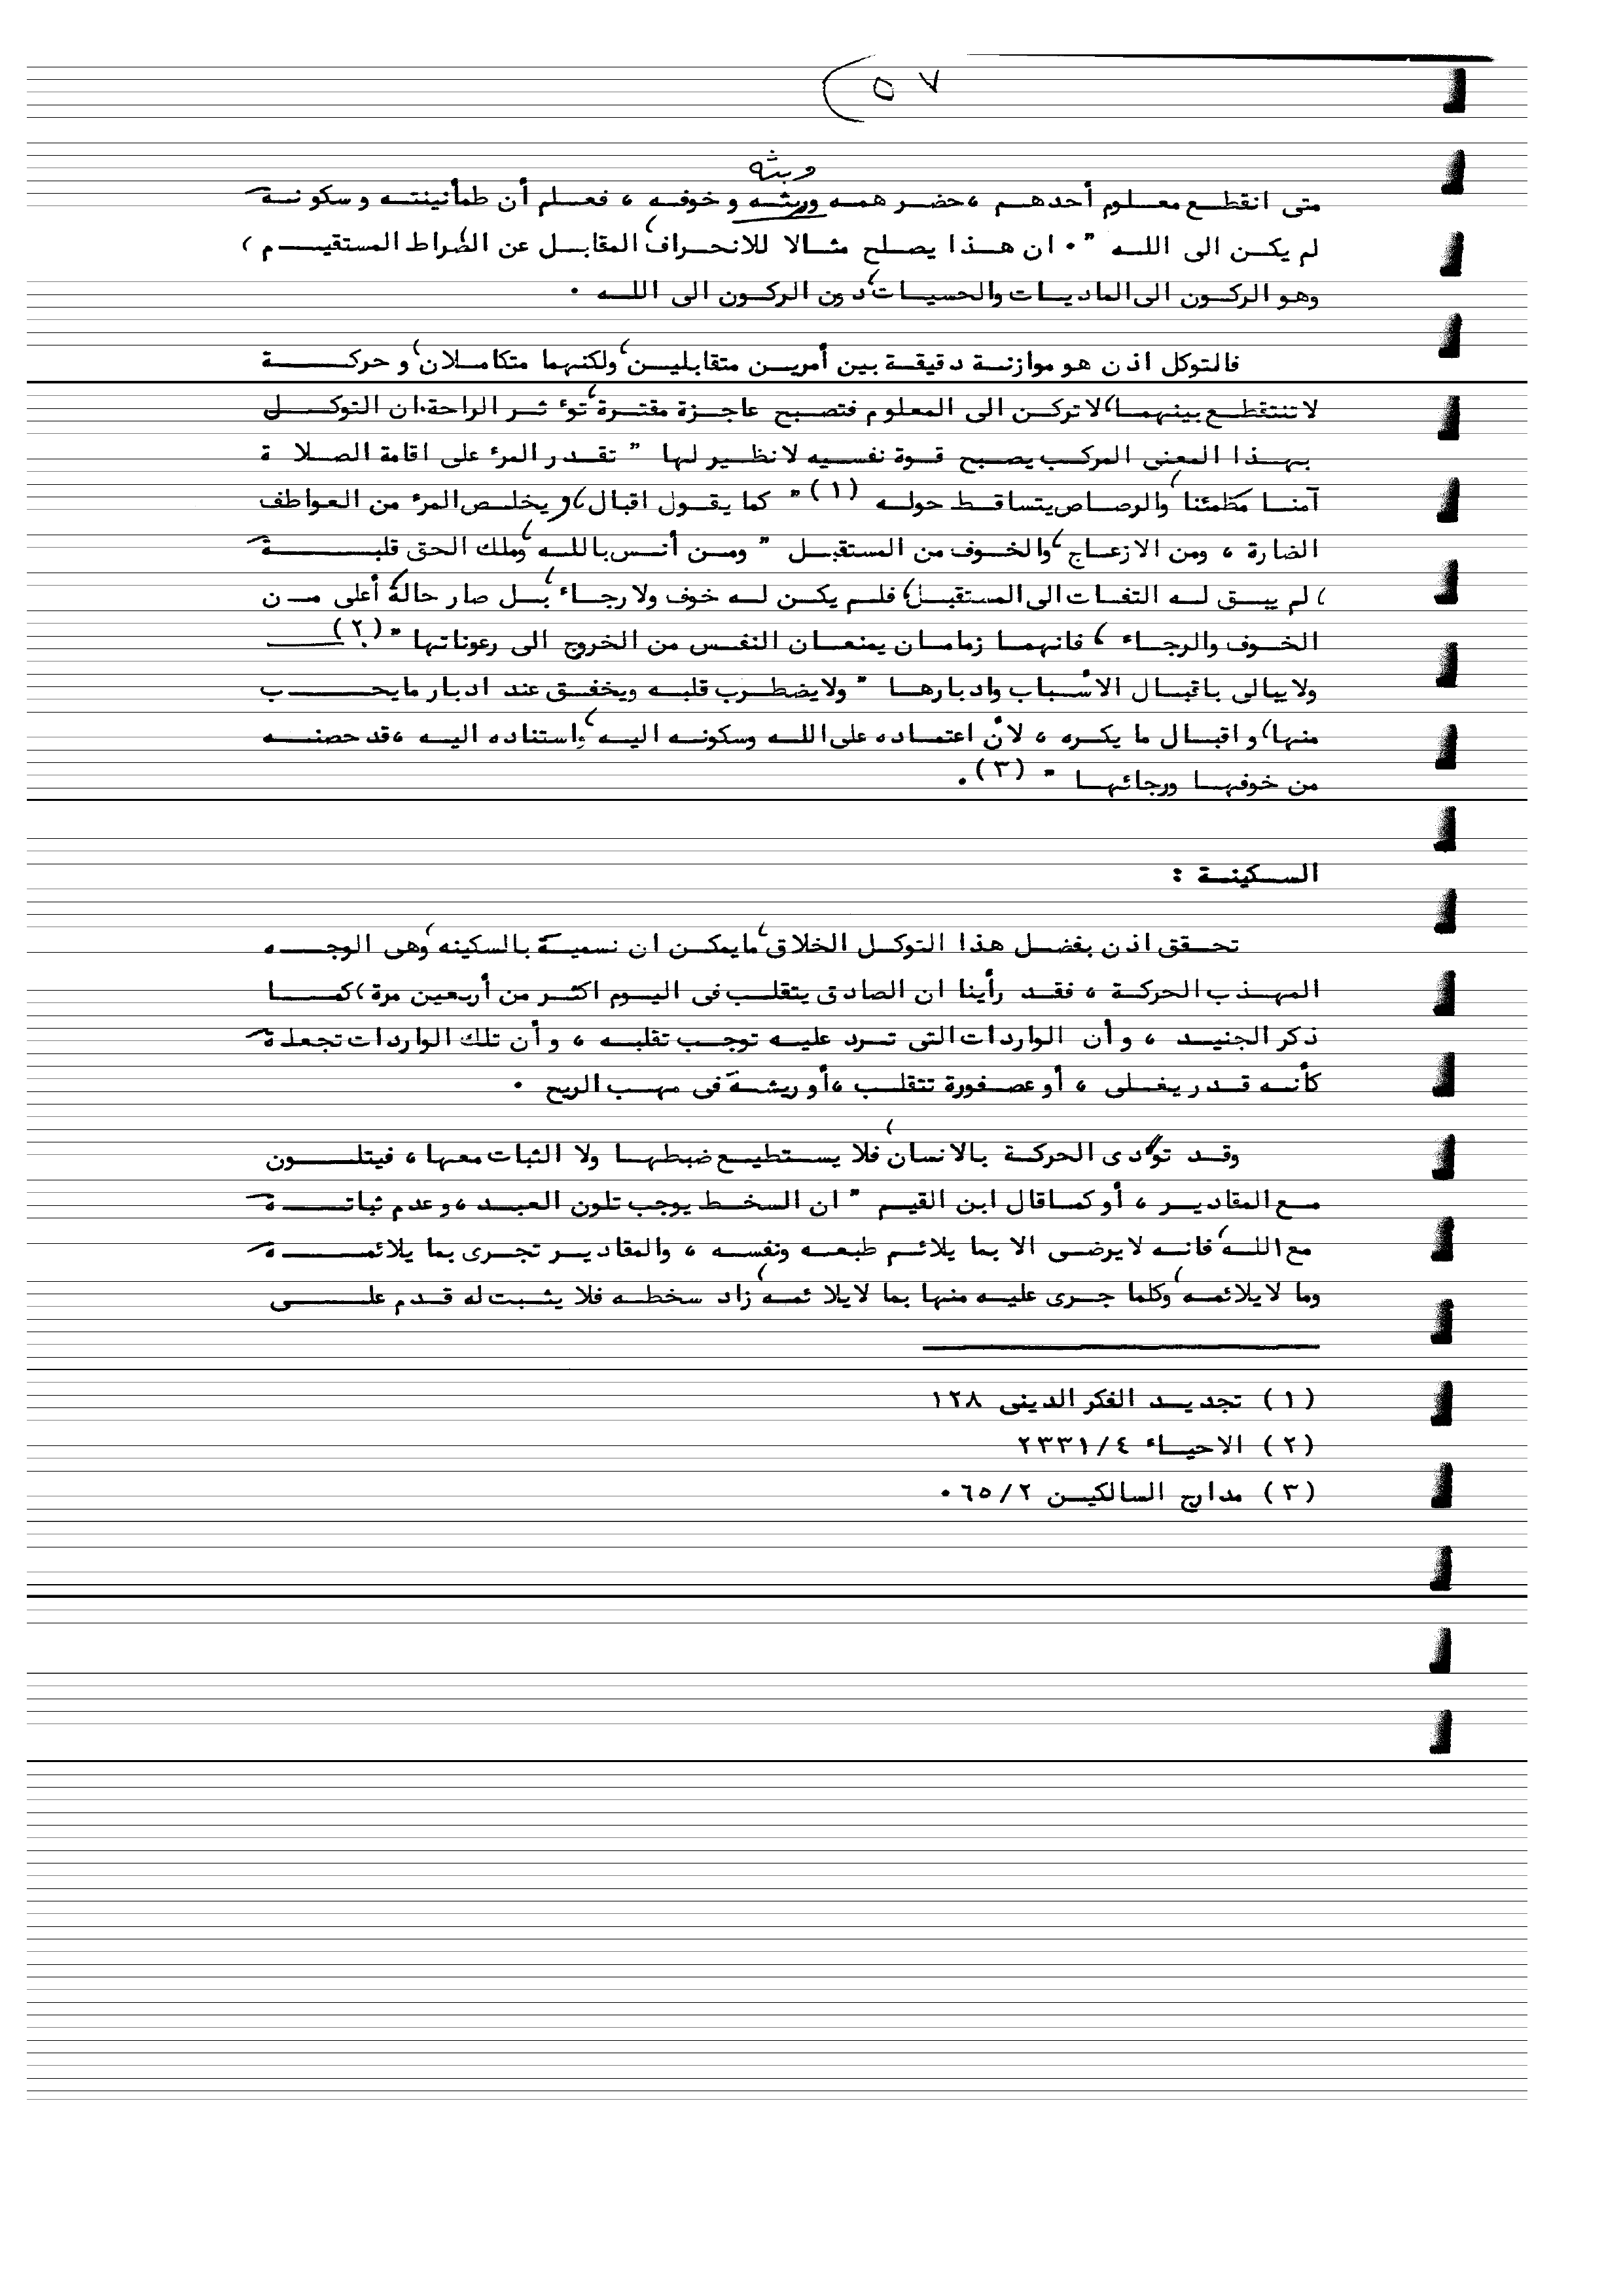 ٥٧
وبثه
متى انقطع معلوم أحدهم ، حضر همه وريثه وخوفه ، فعلم أن طمأنينته وسكونه
لم يكن الى الله " . ان هذا يصلح مثالا للانحراف المقابل عن الصراط المستقيم ،
وهو الركون الى الماديات والحسيات ، دون الركون الى الله .
فالتوكل اذن هو موازنة دقيقة بين أمرين متقابلين ، ولكنهما متكاملان ، وحركة
لا تنتقطع بينهما ، لا تركن الى المعلوم فتصبح عاجزة مقترة ، توء ثر الراحة . ان التوكل
بهذا المعنى المركب يصبح قوة نفسيه لا نظير لها " تقدر المرء على اقامة الصلاة
آمنا مطمئنا ، والرصاص يتساقط حوله (١) " كما يقول اقبال ، ويخلص المرء من العواطف
الضارة ، ومن الازعاج ، والخوف من المستقبل " ومن أنس بالله ، وملك الحق قلبه
، لم يبق له التفات الى المستقبل ، فلم يكن له خوف ولا رجاء ، بل صار حاله أعلى من
الخوف والرجاء ، فانهما زمامان يمنعان النفس من الخروج الى رعوناتها " (٢) .
ولا يبالى باقبال الأسباب وادبارها " ولا يضطرب قلبه ويخفق عند ادبار ما يحب
منها ، واقبال ما يكره ، لأن اعتماده على الله وسكونه اليه ، واستناده اليه ، قد حصنه
من خوفها ورجائها " (٣) .
السكينة :
تحقق اذن بفضل هذا التوكل الخلاق ، ما يمكن ان نسمية بالسكينه ، وهى الوجه
المهذب الحركة ، فقد رأينا ان الصادق يتقلب فى اليوم اكثر من أربعين مرة ، كما
ذكر الجنيد ، وأن الواردات التى ترد عليه توجب تقلبه ، وأن تلك الواردات تجعله
كأنه قدر يغلى ، أو عصفورة تتقلب ، أو ريشة فى مهب الريح .
وقد توءدى الحركة بالانسان ، فلا يستطيع ضبطها ولا الثبات معها ، فيتلون
مع المقادير ، أو كما قال ابن القيم " ان السخط يوجب تلون العبد ، وعدم ثباته
مع الله ، فانه لا يرضى الا بما يلائم طبعه ونفسه ، والمقادير تجرى بما يلائمه
وما لا يلائمه ، وكلما جرى عليه منها بما لا يلائمه ، زاد سخطه فلا يثبت له قدم على
(١) تجديد الفكر الدينى ١٢٨
(٢) الاحياء ٢٣٣١/٤
(٣) مدارج السالكين ٦٥/٢ .